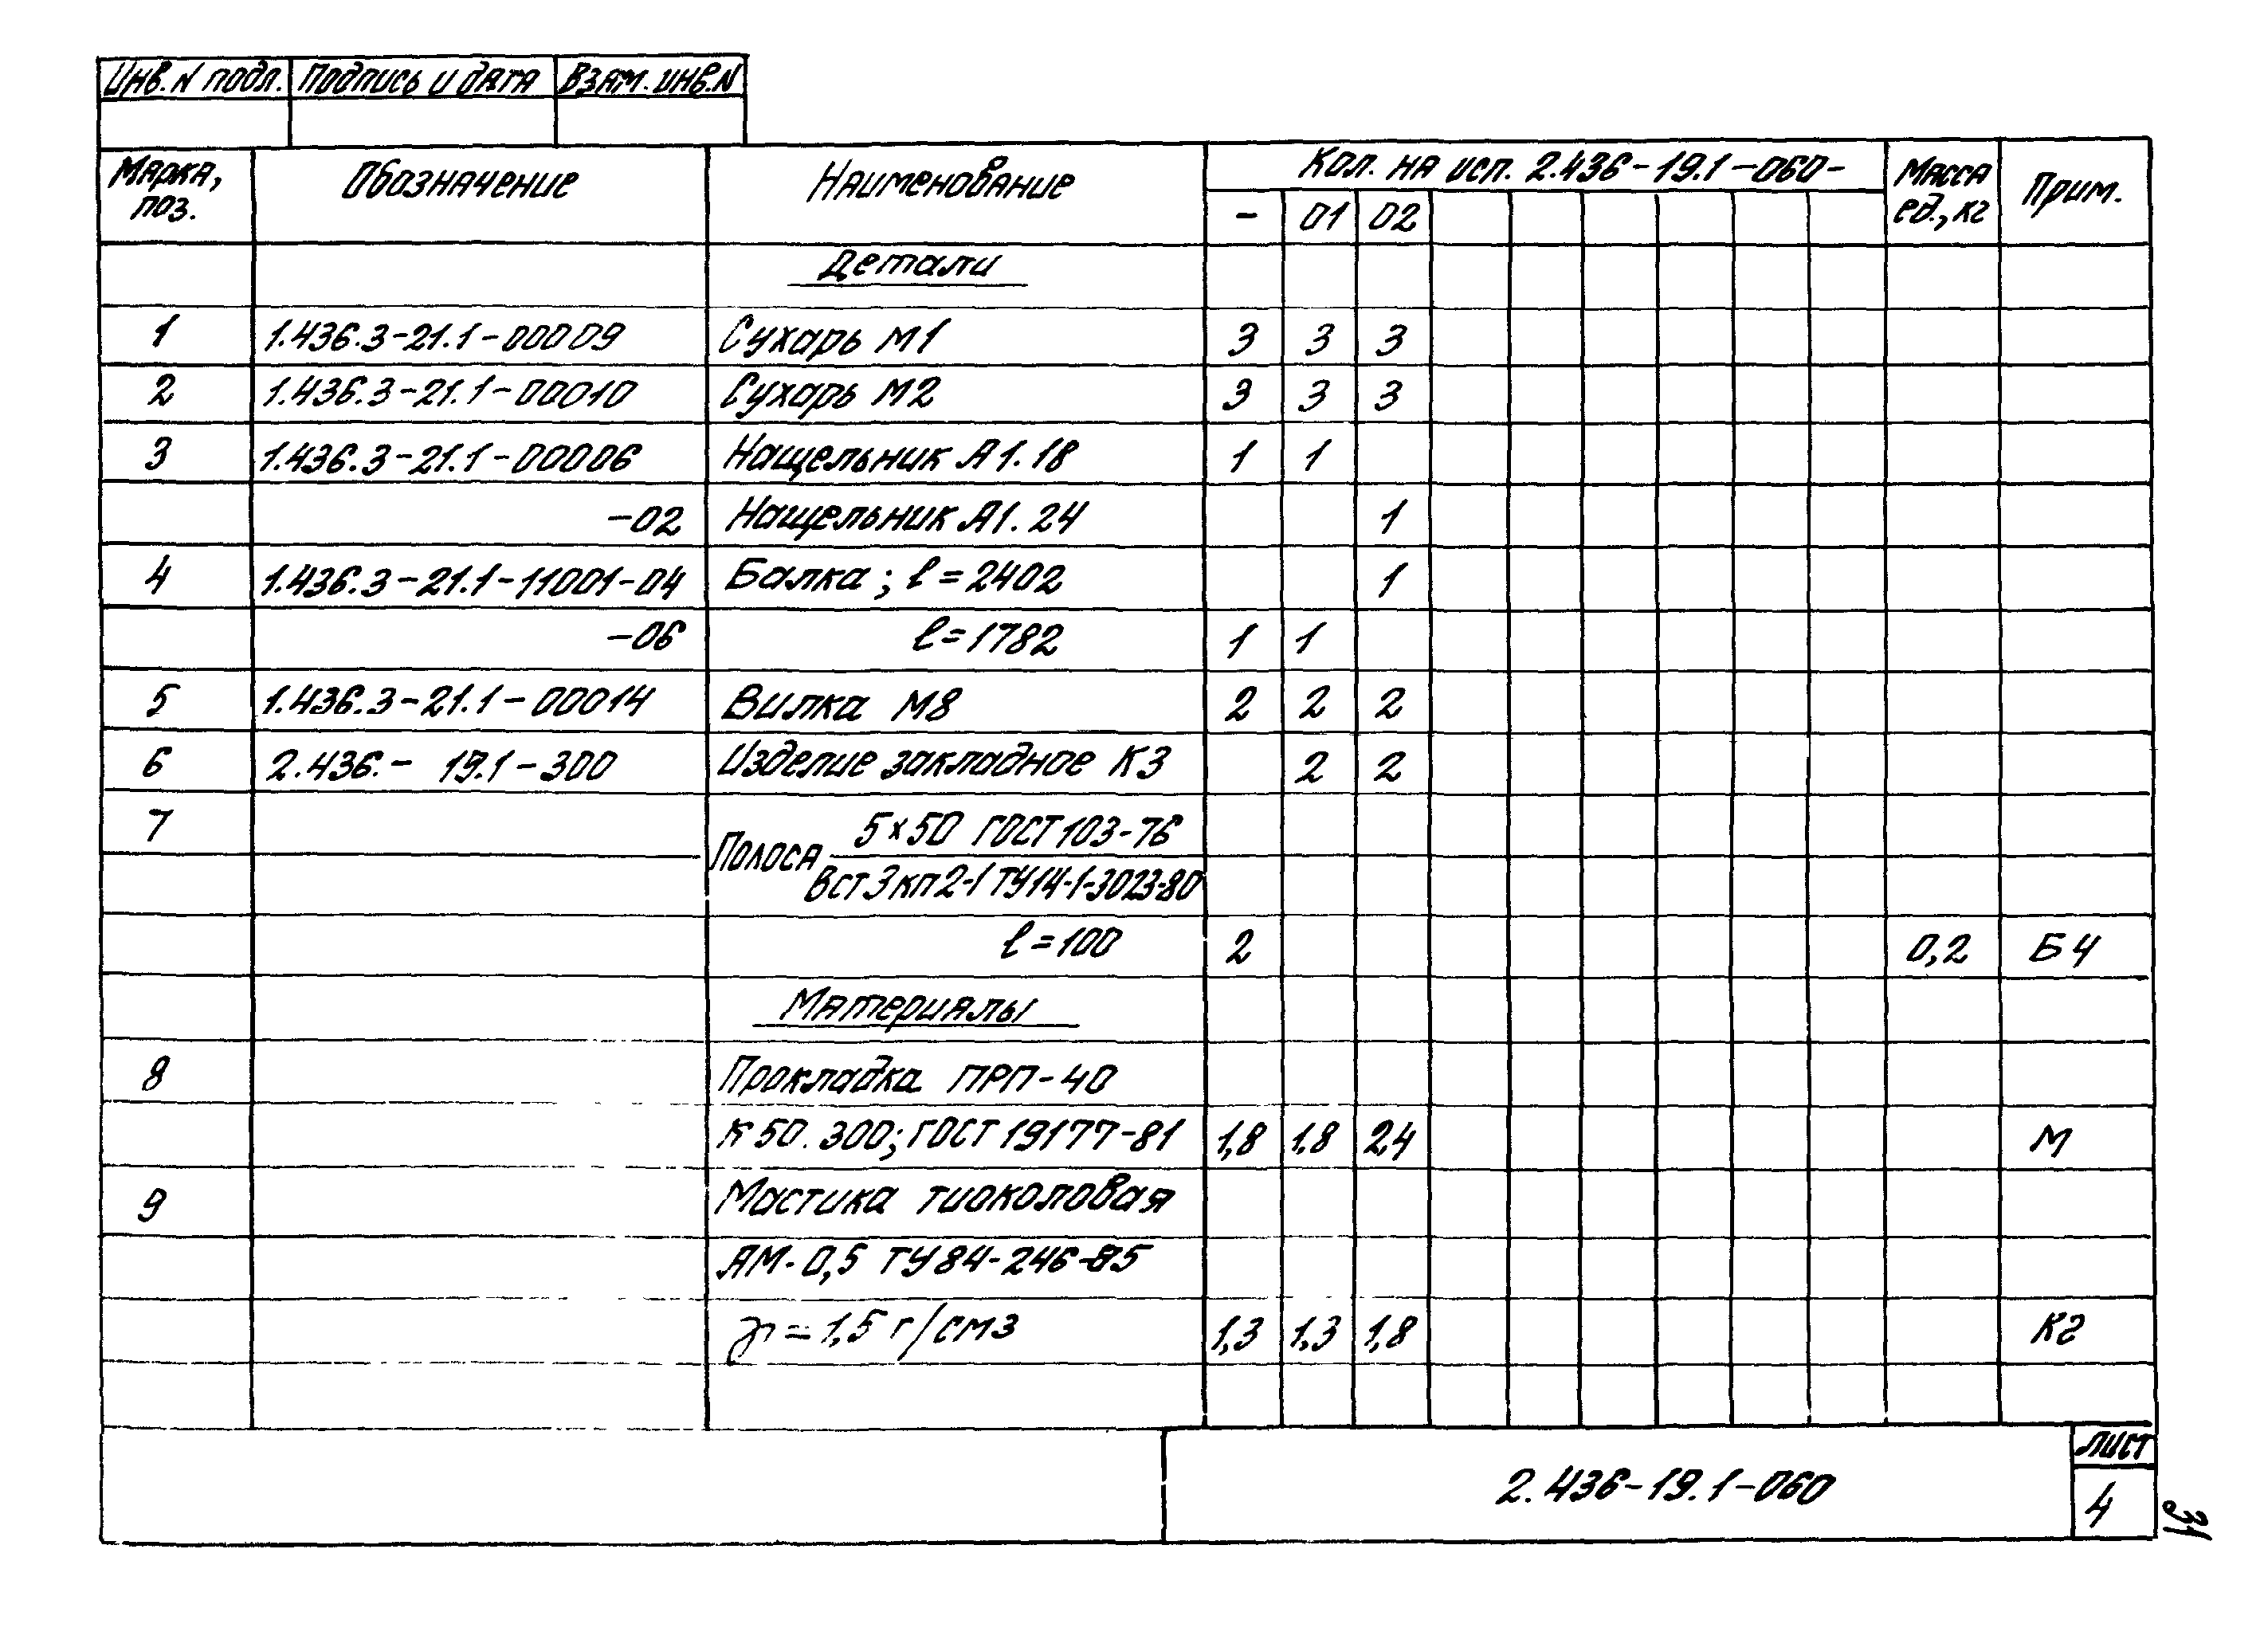 Инв. N подл. Подпись и дата Взам. инв. N
Марка, поз. Обозначение Наименование Кол. на исп. 2.436-19.1-060- Масса ед., кг Прим.
- 01 02
Детали
1 1.436.3-21.1-00009 Сухарь М1 3 3 3
2 1.436.3-21.1-00010 Сухарь М2 3 3 3
3 1.436.3-21.1-00006 Нащельник А1.18 1 1
-02 Нащельник А1.24 1
4 1.436.3-21.1-11001-04 Балка; ℓ=2402 1
-06 ℓ=1782 1 1
5 1.436.3-21.1-00014 Вилка М8 2 2 2
6 2.436.- 19.1-300 Изделие закладное К3 2 2
7 Полоса 5×50 ГОСТ 103-76
Вст3кп2-1 ТУ14-1-3023-80
ℓ=100 2 0,2 БЧ
Материалы
8 Прокладка ПРП-40
К50.300; ГОСТ 19177-81 1,8 1,8 2,4 М
9 Мастика тиоколовая
АМ-0,5 ТУ84-246-85
γ=1,5 г/см3 1,3 1,3 1,8 Кг
2.436-19.1-060
Лист
4
31